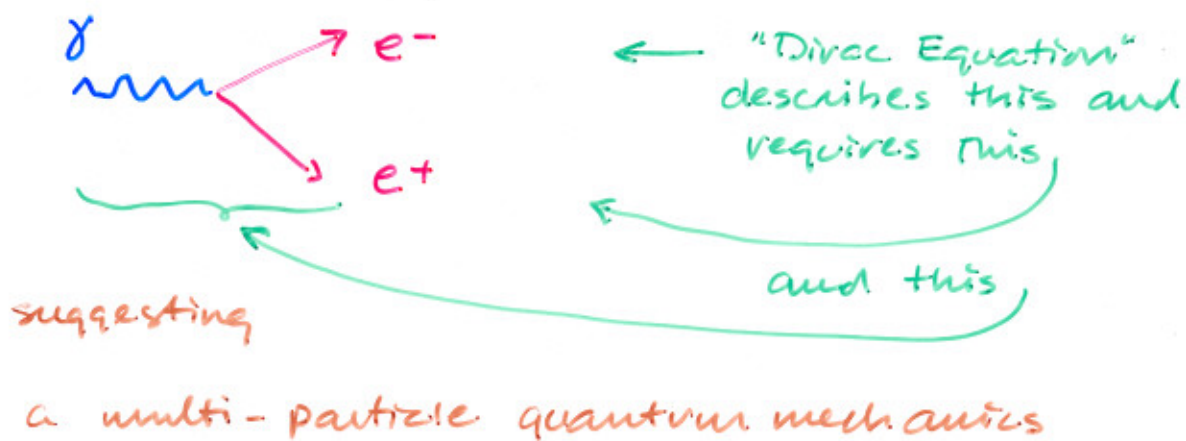 γ
e-
"Dirac Equation"
describes this and
requires this
e+
and this
suggesting
a multi-particle quantum mechanics